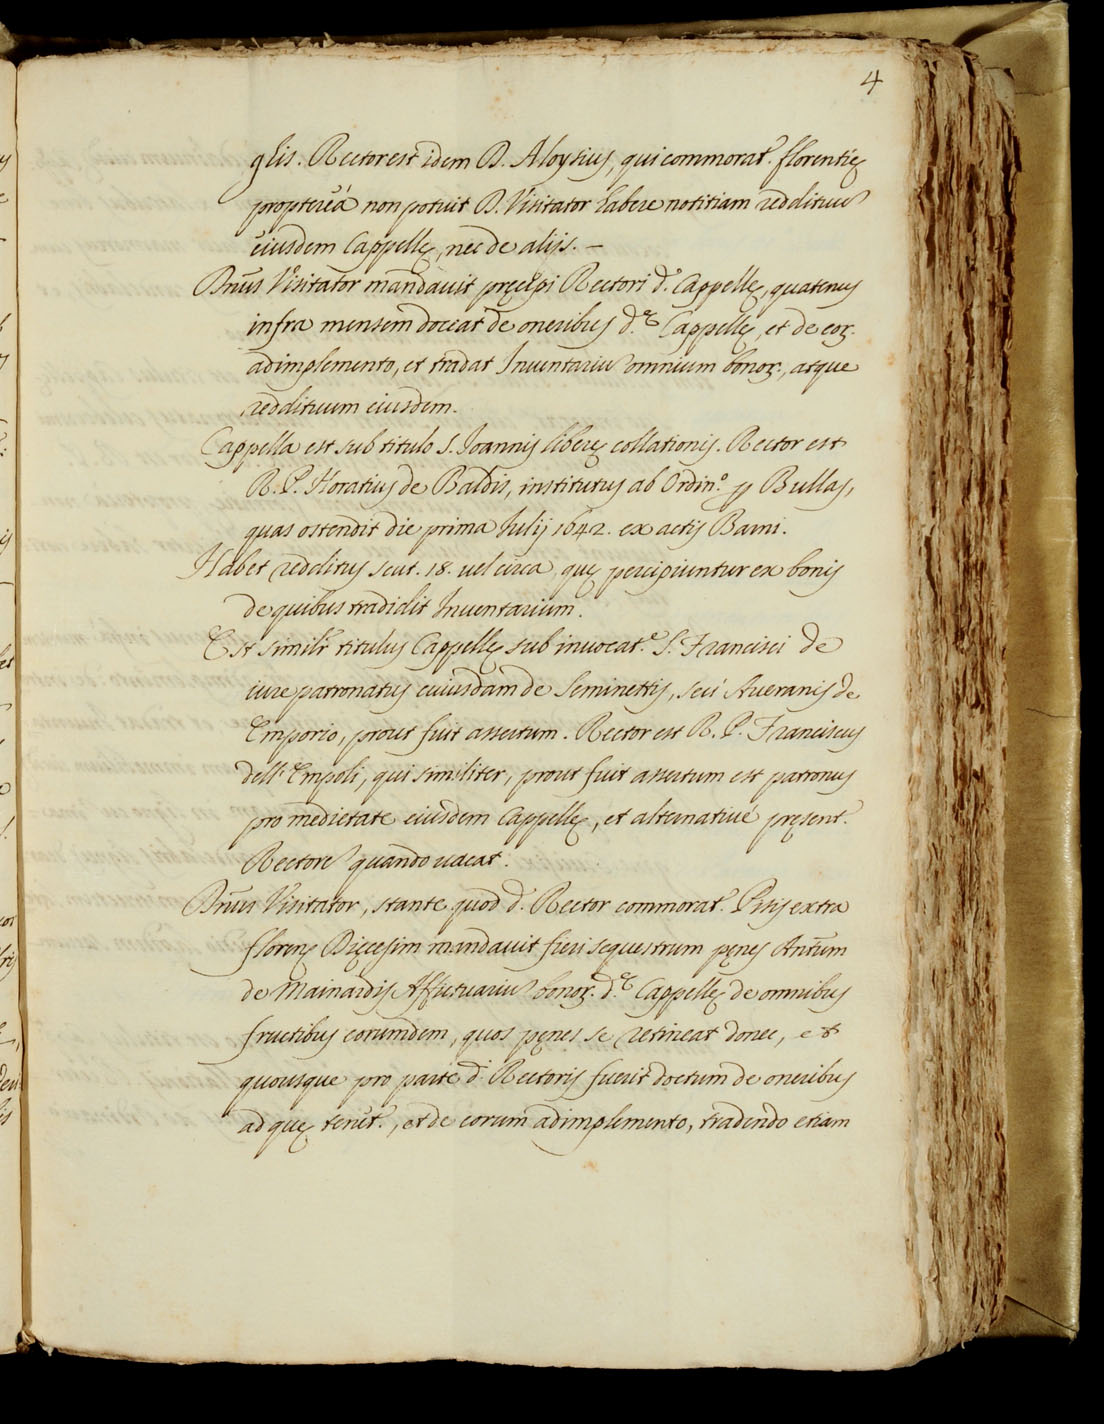 4
glis. Rector est idem D. Aloysius, qui commorat.ʳ florentię
proptereà non potuit D. Visitator habere notitiam reddituũ
eiusdem Cappellę, nec de alijs. –
Dnũs Visitator mandauit pręcipi Rectori d.ᵉ Cappellę, quatenus
infra mensem doceat de oneribus d.ᵉ Cappellę, et de eoꝝ.
adimplemento, et tradat Inuentariũ omnium bonoꝝ., atque
reddituum eiusdem.
Cappella est sub titulo S. Ioannis liberę collationis. Rector est
R. P. Horatius de Baldis, institutus ab Ordin.º ꝑ Bullas,
quas ostendit die prima Iulij 1642. ex actis Barni.
Habet redditus scut. 18. uel circa, quę percipiuntur ex bonis
de quibus tradidit Inuentarium.
Est similr̃ titulus Cappellę sub inuocat.ᵉ S. Francisci de
iure patronatus cuiusdam de Seminettis, seù Aueranis de
Emporio, prout fuit assertum. Rector est R. P. Franciscus
dell' Empoli, qui similiter, prout fuit assertum est patronus
pro medietate eiusdem Cappellę, et alternatiuè pręsent.
Rectorẽ quando uacat.
Dnũs Visitator, stante quod d. Rector commorat.ʳ Pisis extra
florenę Dięcesim mandauit fieri sequestrum pęnes Antũm
de Mainardis Affictuariũ bonoꝝ. d.ᵉ Cappellę de omnibus
fructibus eorumdem, quos pęnes se retineat donec, et
quousque pro parte d. Rectoris fuerit doctum de oneribus
ad quę tenet.ʳ, et de eorum adimplemento, tradendo etiam